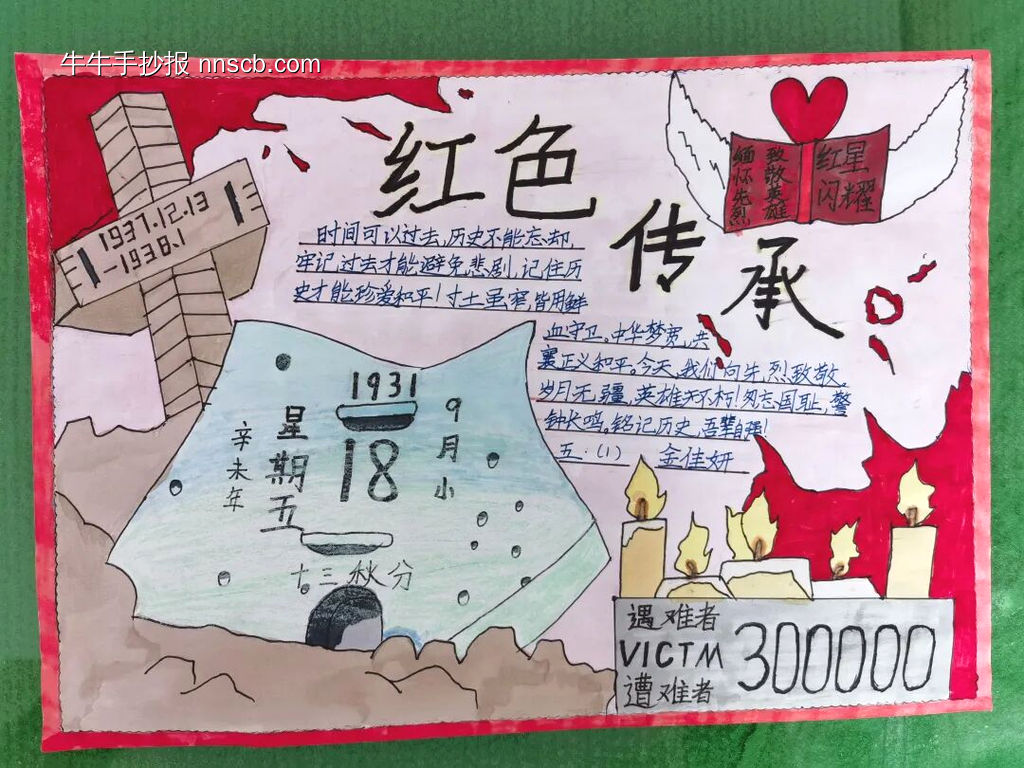 牛牛手抄报 nnscb.com
红色
传承
缅怀先烈
致敬英雄
红星
闪耀
1937.12.13
-1938.1
时间可以过去,历史不能忘却,
牢记过去才能避免悲剧,记住历
史才能珍爱和平!寸土虽窄,皆用鲜
血守卫。中华梦宽,共
襄正义和平。今天,我们向先烈致敬。
岁月无疆,英雄不朽!勿忘国耻,警
钟长鸣,铭记历史,吾辈自强!
五.(1) 金佳妍
1931
9月小
18
星期五
辛未年
十三秋分
遇难者
VICTM
遭难者
300000